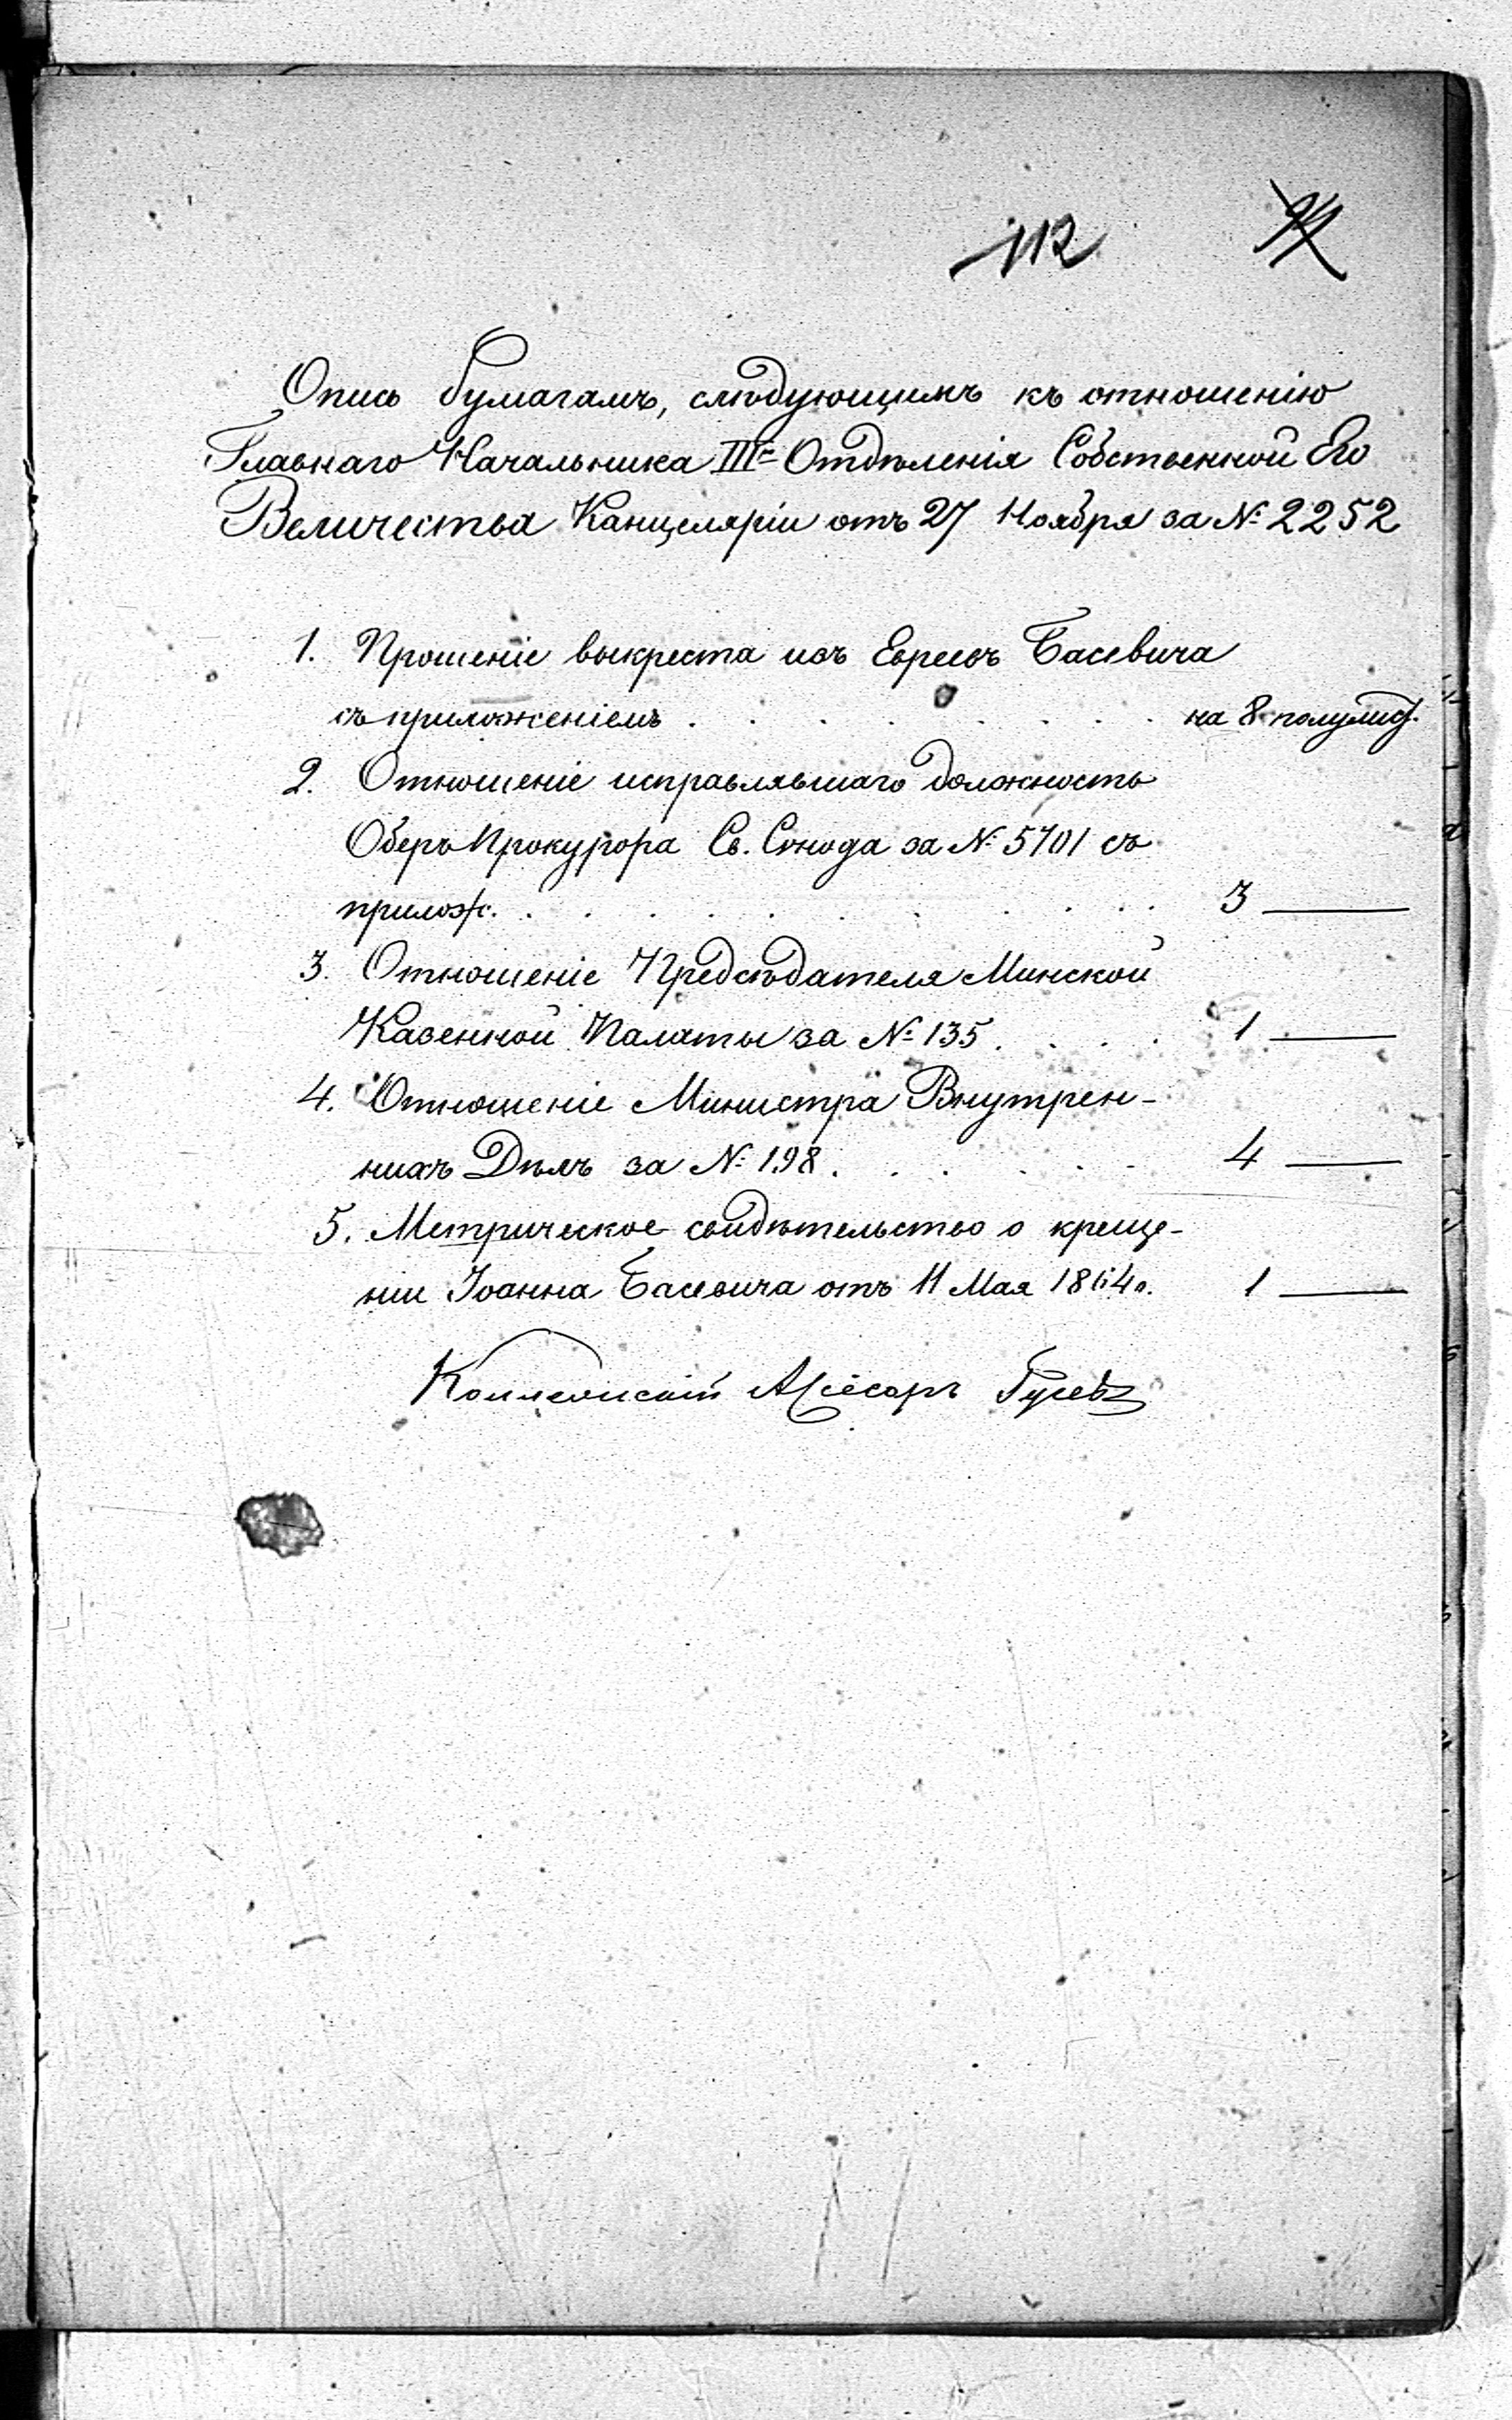 112
Опись бумагамъ, слѣдующимъ къ отношенію
Главнаго Начальника III-го Отдѣленія Собственной Его
Величества Канцеляріи отъ 27 Ноября за № 2252
1. Прошеніе выкреста изъ Евреевъ Басевича
съ приложеніемъ . . . . . . . . на 8 полулист.
2. Отношеніе исправлявшаго должность
Оберъ Прокурора Св. Синода за № 5701 съ
прилож. . . . . . . . . . . . 3 ——
3. Отношеніе Предсѣдателя Минской
Казенной Палаты за № 135 . . . . 1 ——
4. Отношеніе Министра Внутрен-
нихъ Дѣлъ за № 198 . . . . . . 4 ——
5. Метрическое свидѣтельство о креще-
ніи Іоанна Басевича отъ 11 Мая 1864 г. 1 ——
Коллежскій Ассесоръ Гусевъ